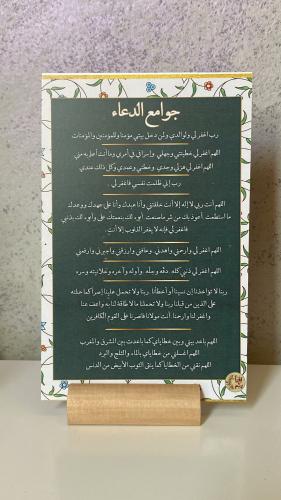 جوامع الدعاء
رب اغفر لي ولوالدي ولمن دخل بيتي مؤمنا وللمؤمنين والمؤمنات
اللهم اغفر لي خطيئتي وجهلي وإسرافي في أمري وما أنت أعلم به مني
اللهم اغفر لي هزلي وجدي وخطئي وعمدي وكل ذلك عندي
رب إني ظلمت نفسي فاغفر لي
اللهم أنت ربي لا إله إلا أنت خلقتني وأنا عبدك وأنا على عهدك ووعدك
ما استطعت أعوذ بك من شر ما صنعت أبوء لك بنعمتك علي وأبوء لك بذنبي
فاغفر لي فإنه لا يغفر الذنوب إلا أنت
اللهم اغفر لي وارحمني واهدني وعافني وارزقني واجبرني وارفعني
اللهم اغفر لي ذنبي كله دقه وجله وأوله وآخره وعلانيته وسره
ربنا لا تؤاخذنا إن نسينا أو أخطأنا ربنا ولا تحمل علينا إصرا كما حملته
على الذين من قبلنا ربنا ولا تحملنا ما لا طاقة لنا به واعف عنا
واغفر لنا وارحمنا أنت مولانا فانصرنا على القوم الكافرين
اللهم باعد بيني وبين خطاياي كما باعدت بين المشرق والمغرب
اللهم اغسلني من خطاياي بالماء والثلج والبرد
اللهم نقني من الخطايا كما ينقى الثوب الأبيض من الدنس